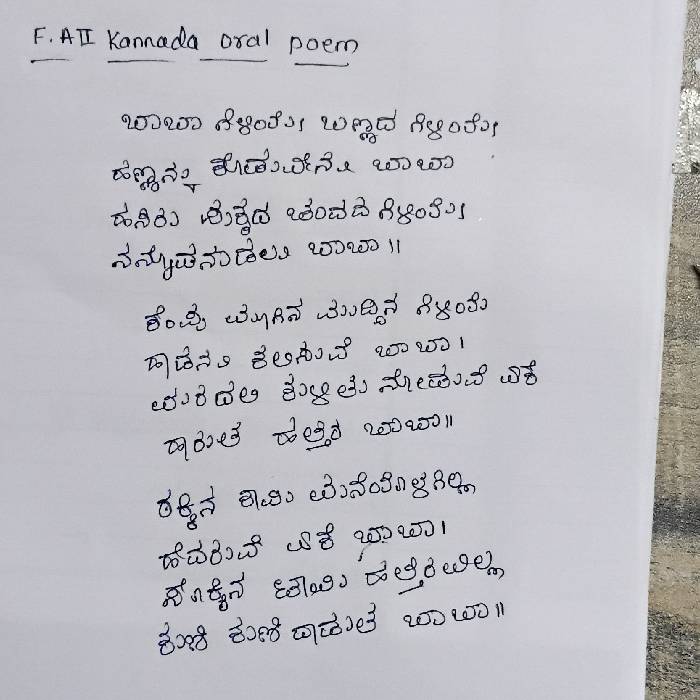 F.A II Kannada oral poem
ಬಾಬಾ ಗಿಳಿಯೇ ಬಣ್ಣದ ಗಿಳಿಯೇ
ಹಣ್ಣನ್ನು ಕೊಡುವೇನು ಬಾಬಾ
ಹಸಿರು ಪುಕ್ಕದ ಚಂದದ ಗಿಳಿಯೇ
ನನ್ನೊಡನಾಡಲು ಬಾಬಾ॥
ಕೆಂಪು ಮೂಗಿನ ಮುದ್ದಿನ ಗಿಳಿಯೆ
ಹಾಡನು ಕಲಿಸುವೆ ಬಾಬಾ।
ಮರದಲಿ ಕುಳಿತು ನೋಡುವೆ ಏಕೆ
ಹಾರುತ ಹತ್ತಿರ ಬಾಬಾ॥
ಬೆಕ್ಕಿನ ಮನೆಯೊಳಗಿಲ್ಲ
ಹೆದರುವೆ ಏಕೆ ಬಾಬಾ।
ಹತ್ತಿರವಿಲ್ಲ
ಕುಣಿ ಕುಣಿದಾಡುತ ಬಾಬಾ॥